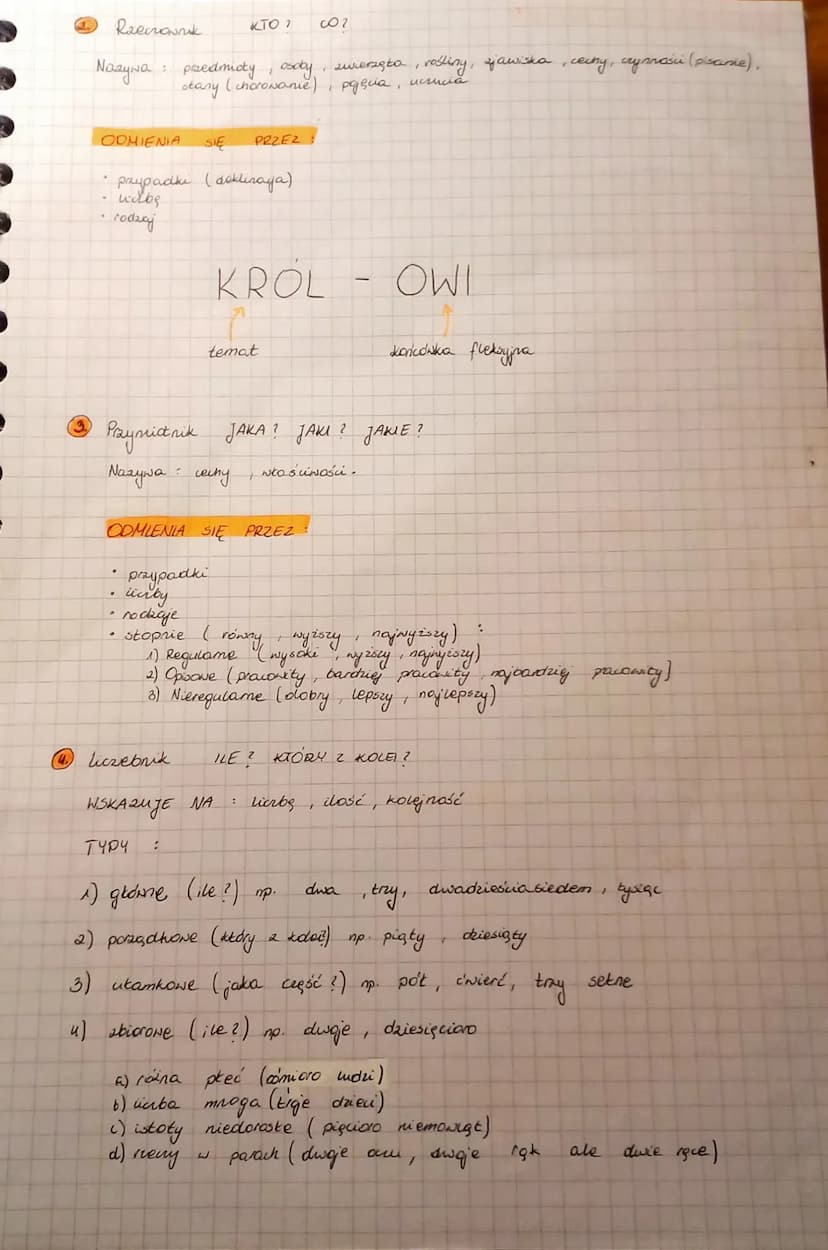 2. Rzeczownik KTO? CO?
Nazywa : przedmioty , osoby , zwierzęta , rośliny, zjawiska , cechy, czynności (pisanie),
stany (chorowanie) , pojęcia , uczucia
ODMIENIA SIĘ PRZEZ :
• przypadki (deklinacja)
• liczbę
• rodzaj
KRÓL - OWI
temat końcówka fleksyjna
3. Przymiotnik JAKA? JAKI? JAKIE?
Nazywa : cechy , właściwości.
ODMIENIA SIĘ PRZEZ :
• przypadki
• liczby
• rodzaje
• stopnie ( równy , wyższy , najwyższy) :
1) Regularne (wysoki , wyższy , najwyższy)
2) Opisowe (pracowity , bardziej pracowity , najbardziej pracowity)
3) Nieregularne (dobry , lepszy , najlepszy)
4. Liczebnik ILE? KTÓRY Z KOLEI?
WSKAZUJE NA : liczbę , ilość , kolejność
TYPY :
1) główne (ile?) np. dwa , trzy, dwadzieścia siedem , tysiąc
2) porządkowe (który z kolei?) np. piąty , dziesiąty
3) ułamkowe (jaka część?) np. pół, ćwierć, trzy setne
4) zbiorowe (ile?) np. dwoje , dziesięcioro
a) różna płeć (ośmioro ludzi)
b) liczba mnoga (troje dzieci)
c) istoty niedorosłe ( pięcioro niemowląt)
d) rzeczy w parach ( dwoje oczu , dwoje rąk ale dwie ręce)